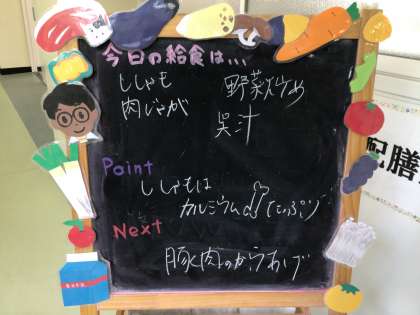 今日の給食は...
ししゃも 野菜炒め
肉じゃが 呉汁
Point
ししゃもは
カルシウムがたっぷり
Next
豚肉のからあげ
配膳